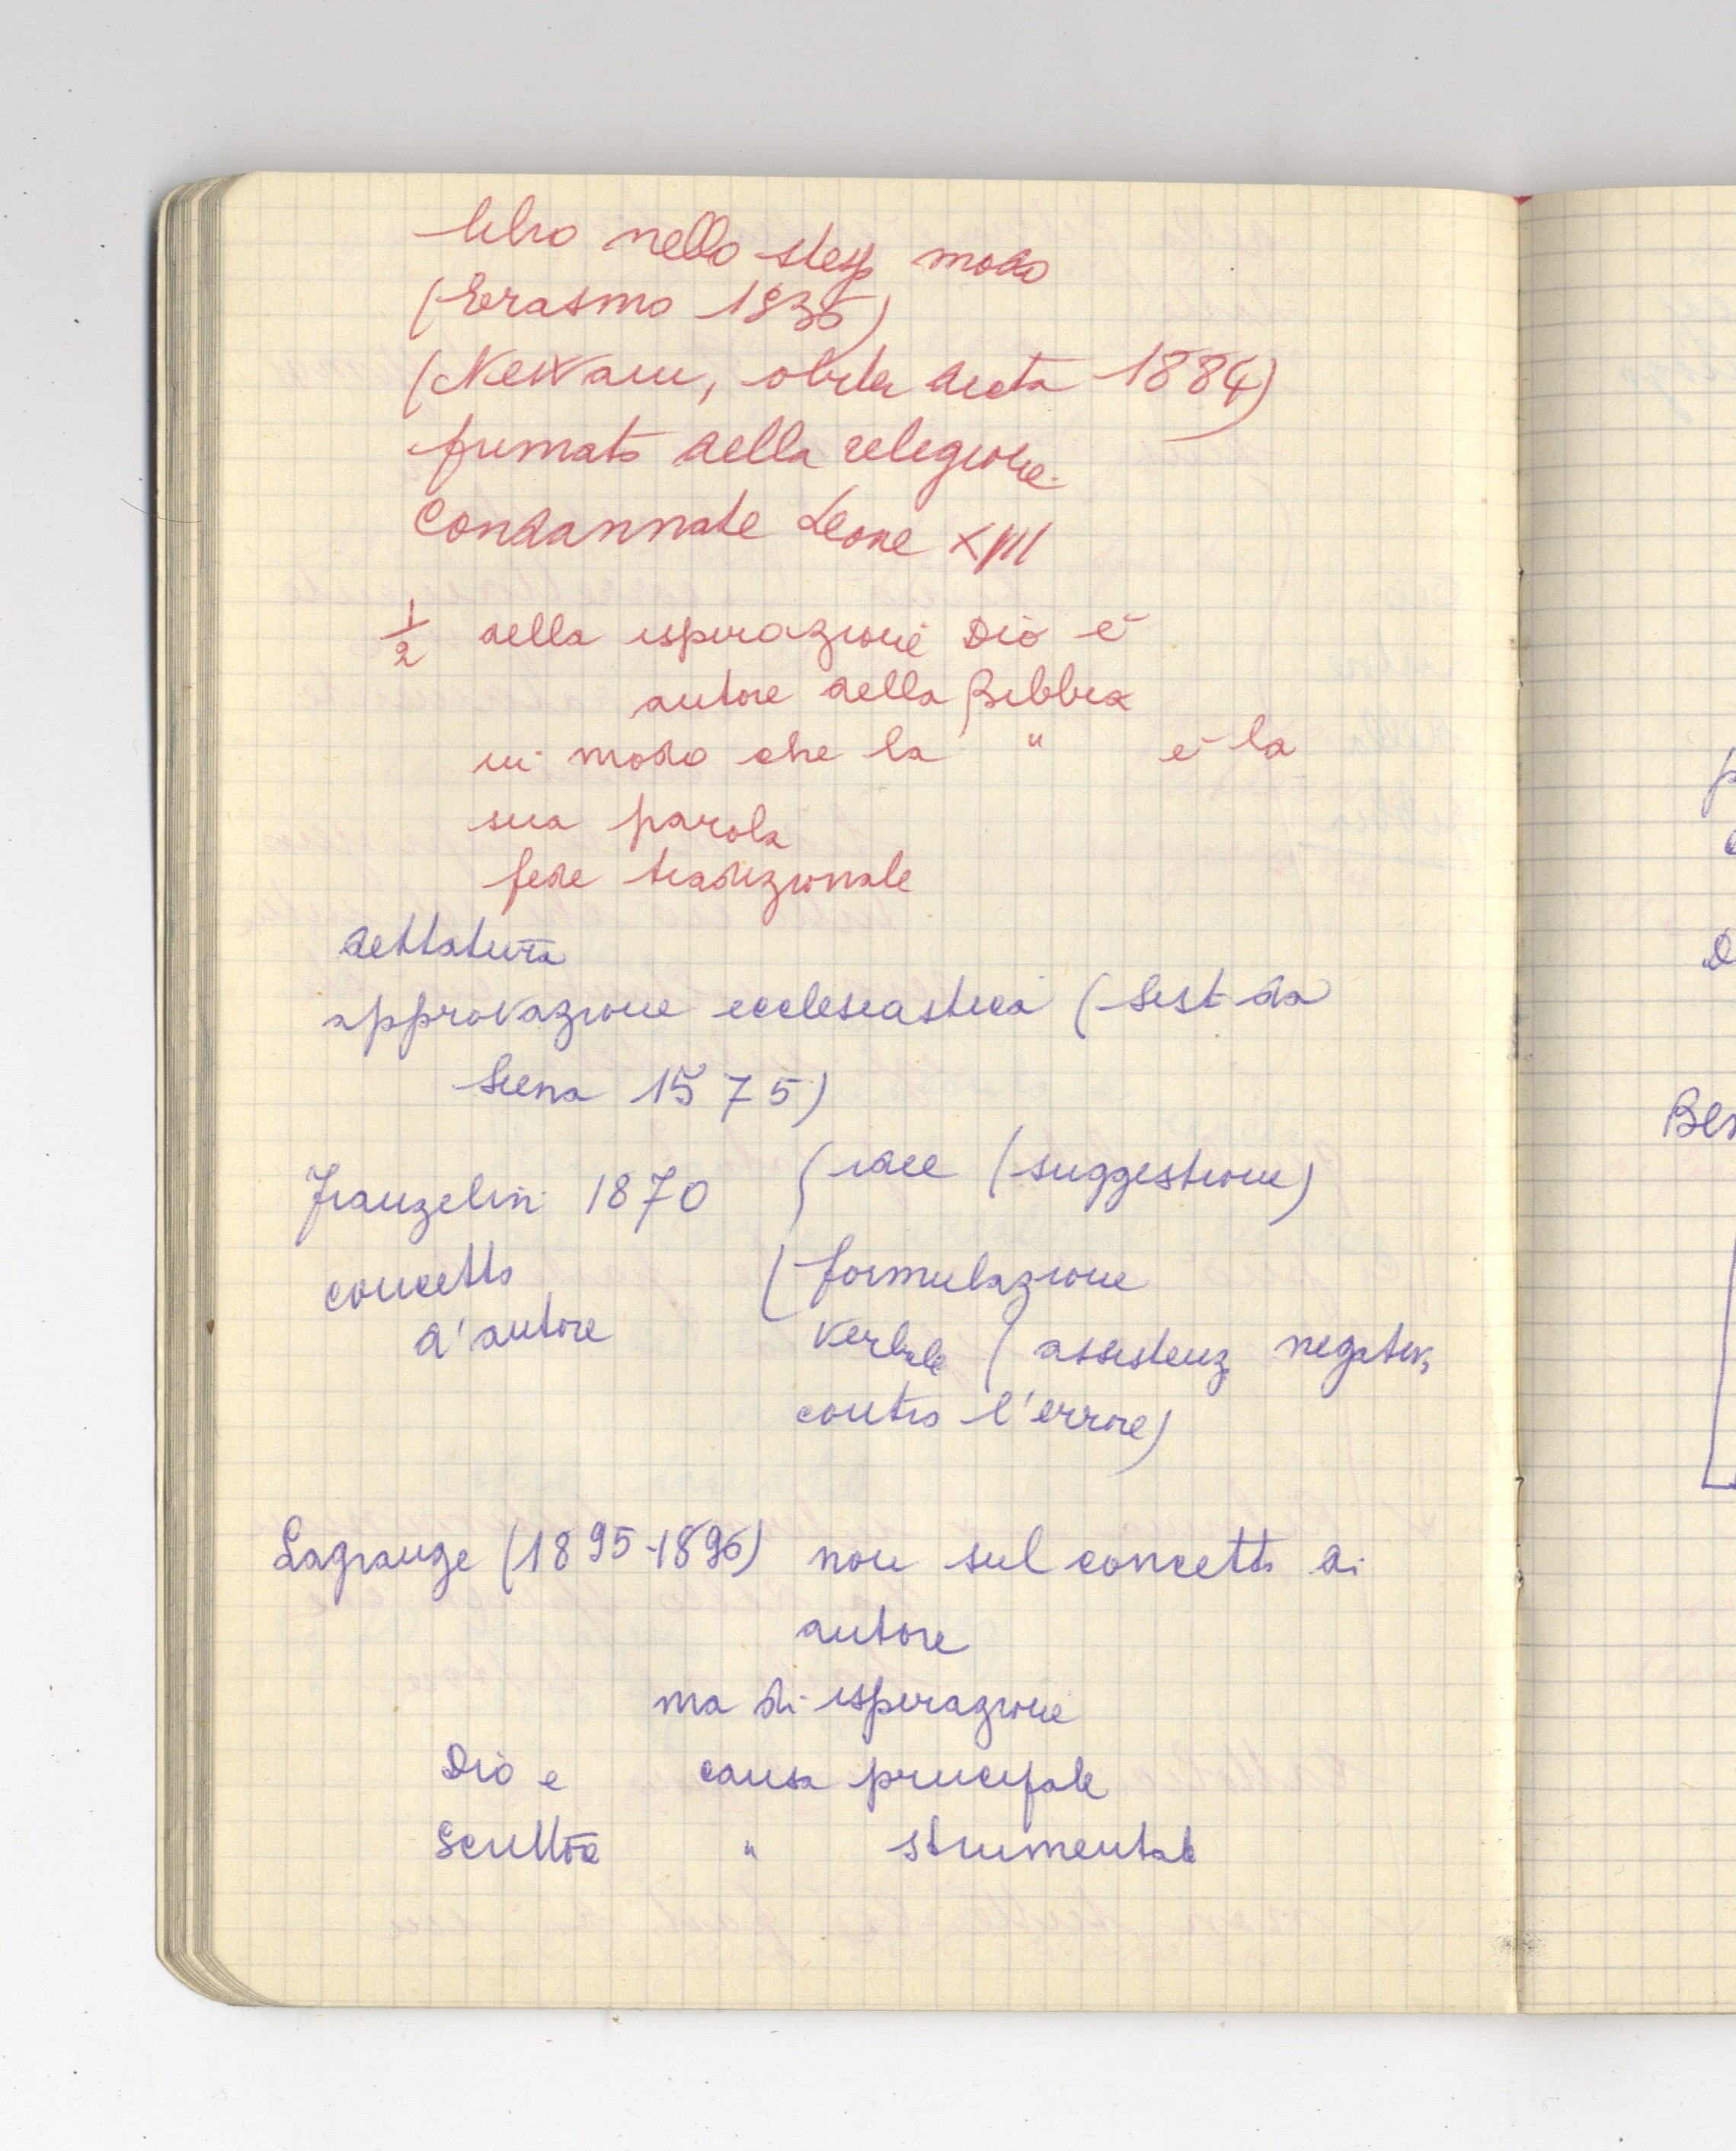 libro nello stesso modo
(Erasmo 1836)
(Newam, obiter dicta 1884)
primato della religione.
Condannate Leone XIII
1/2 della ispirazione Dio è
autore della Bibbia
in modo che la " è la
sua parola
fede tradizionale
dettatura
approvazione ecclesiastica (Sist da
Siena 1575)
Franzelin 1870 (idee (suggestione)
concetto (formulazione
d'autore verbale (assistenz negativ
contro l'errore)
Lagrange (1895-1896) non sul concetto di
autore
ma di ispirazione
Dio e causa principale
Scrittore " strumentale
p
D
Ben